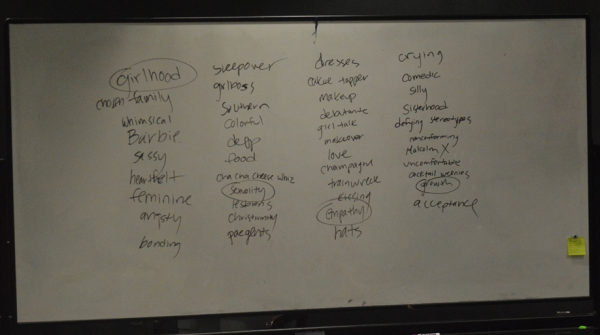 girlhood
chosen family
whimsical
Barbie
sassy
heartfelt
feminine
angsty
bonding
sleepover
girlboss
Southern
colorful
deep
food
cha cha cheese whiz
sexuality
lesbians
christianity
pagents
dresses
cake topper
makeup
debutante
girl talk
makeover
love
champagne
trainwreck
kissing
empathy
hats
crying
comedic
silly
Sisterhood
defying stereotypes
nonconforming
Malcolm X
uncomfortable
cocktail weenies
growth
acceptance